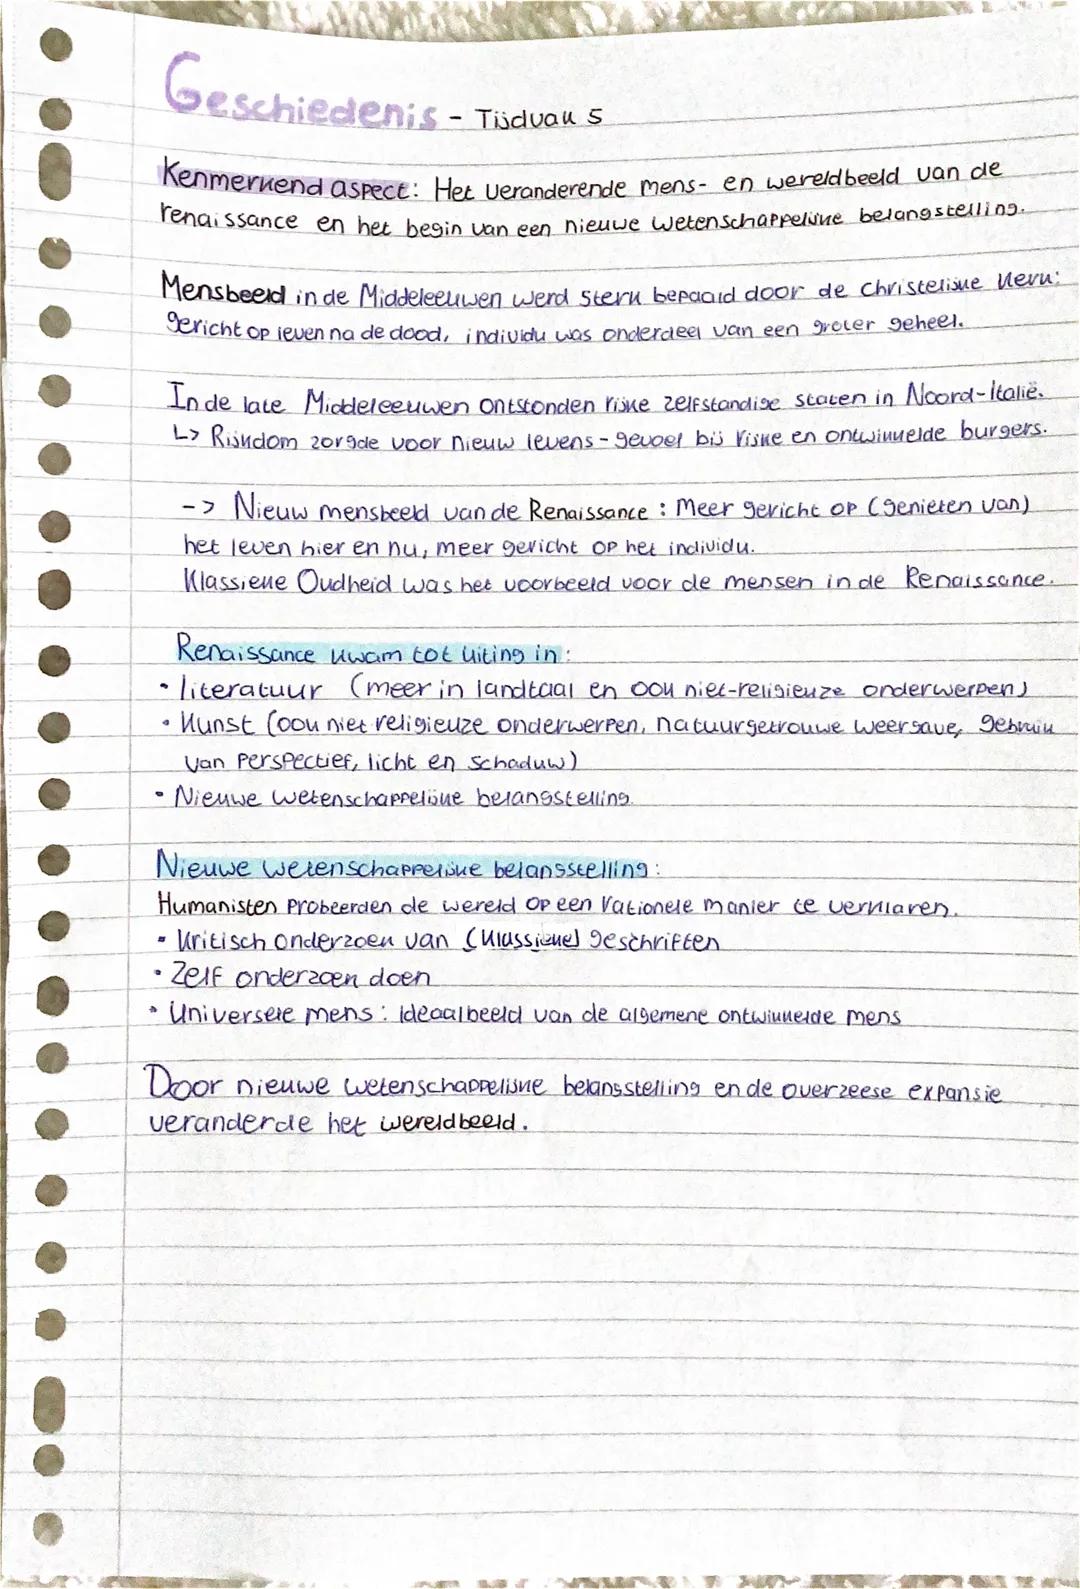 Geschiedenis - Tijdvak 5
Kenmerkend aspect: Het veranderende mens- en wereldbeeld van de
renaissance en het begin van een nieuwe wetenschappelijke belangstelling.
Mensbeeld in de Middeleeuwen werd sterk bepaald door de christelijke kerk:
gericht op leven na de dood, individu was onderdeel van een groter geheel.
In de late Middeleeuwen ontstonden rijke zelfstandige staten in Noord-Italië.
↳ Rijkdom zorgde voor nieuw levens-gevoel bij rijke en ontwikkelde burgers.
-> Nieuw mensbeeld van de Renaissance : Meer gericht op (genieten van)
het leven hier en nu, meer gericht op het individu.
Klassieke Oudheid was het voorbeeld voor de mensen in de Renaissance.
Renaissance kwam tot uiting in:
• literatuur (meer in landtaal en ook niet-religieuze onderwerpen)
• Kunst (ook niet religieuze onderwerpen, natuurgetrouwe weergave, gebruik
van perspectief, licht en schaduw)
• Nieuwe wetenschappelijke belangstelling.
Nieuwe wetenschappelijke belangstelling:
Humanisten probeerden de wereld op een rationele manier te verklaren.
• Kritisch onderzoek van (klassieke) geschriften
• Zelf onderzoek doen
• Universele mens: ideaalbeeld van de algemene ontwikkelde mens
Door nieuwe wetenschappelijke belangstelling en de overzeese expansie
veranderde het wereldbeeld.